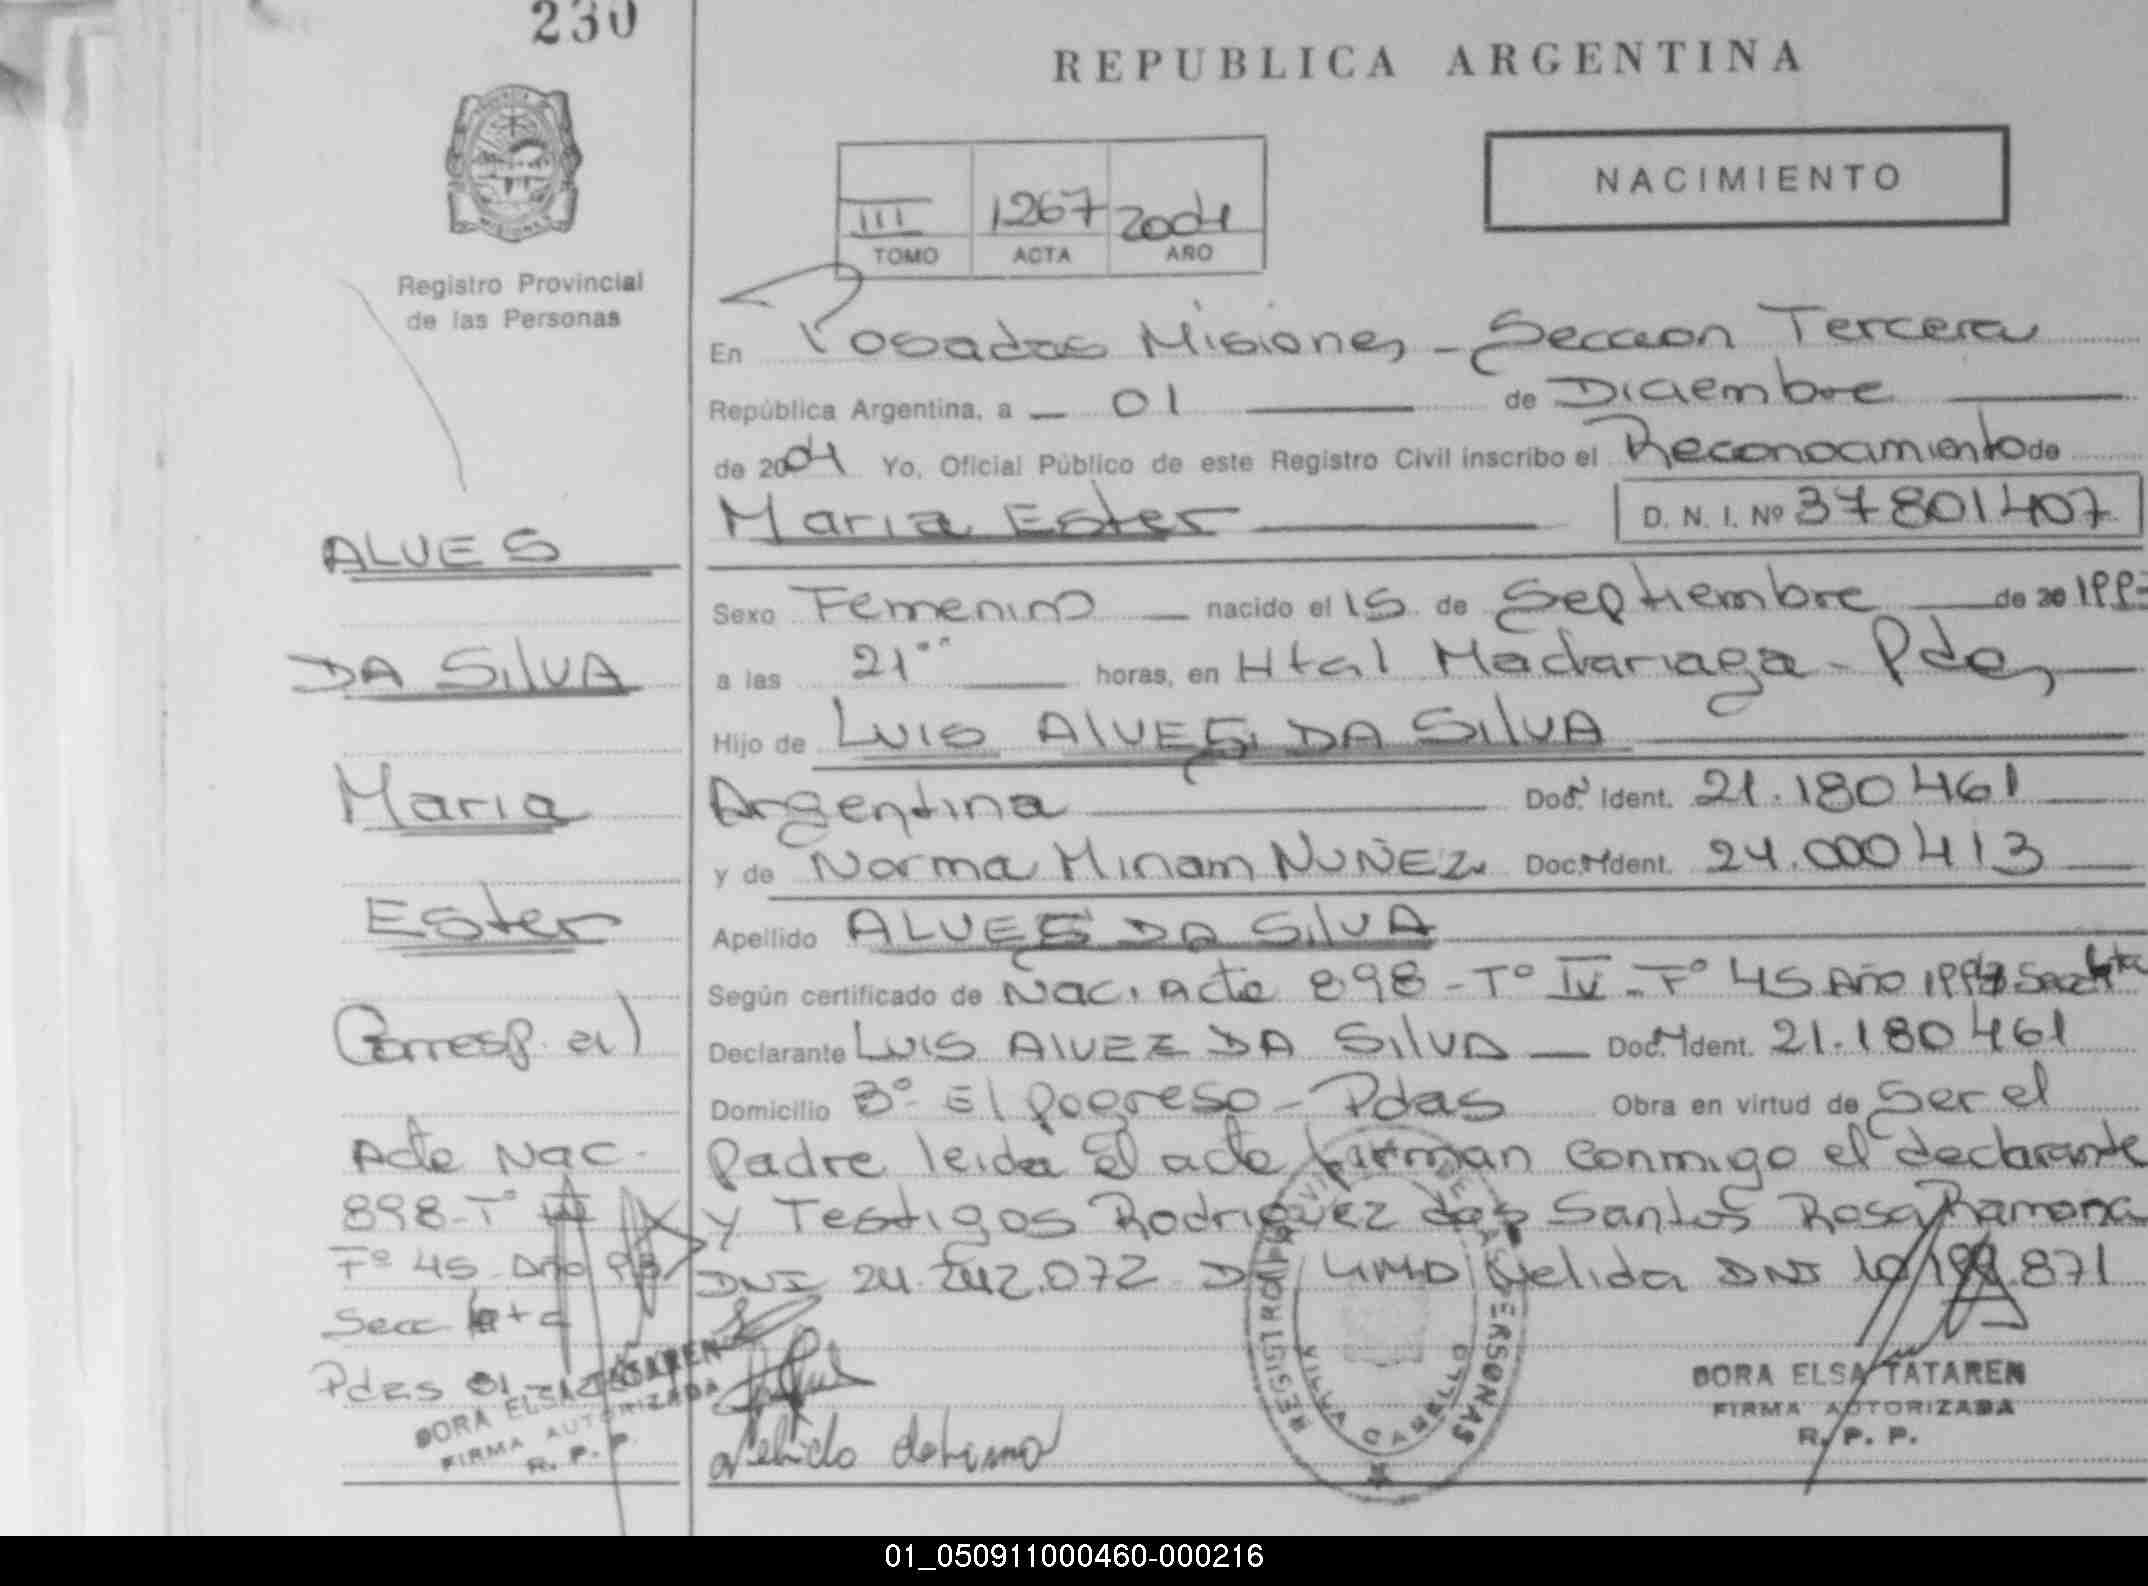 230
REPUBLICA ARGENTINA
NACIMIENTO
III 1267 2004
TOMO ACTA AÑO
Registro Provincial
de las Personas
En Posadas Misiones - Sección Tercera
República Argentina, a 01 de Diciembre
de 2004 Yo, Oficial Público de este Registro Civil inscribo el Reconocimiento de
Maria Ester D. N. I. Nº 37801407
ALVES
Sexo Femenino nacido el 15 de Septiembre de 20 199
DA SilVA
a las 21 horas, en Htal Madariaga - Pdas
Hijo de LUIS AlVES DA SilVA
Maria
Argentina Doc. Ident. 21.180461
y de Norma Miriam NUÑEZ Doc. Ident. 24.000413
Ester
Apellido ALVES DA SilVA
Según certificado de Nac. Acta 898 - Tº IV - Fº 45 Año Secc 4ta
Corresp. al
Declarante LUIS AlVEZ DA SilVA Doc. Ident. 21.180461
Domicilio Bº El Pogreso - Pdas Obra en virtud de Ser el
Acta Nac.
Padre leida El acta firman conmigo el declarante
898 - Tº
y Testigos Rodriguez dos Santos Rosa Ramona
Fº 45 Año 93
DNI 24.242.072 Nelida DNI 871
Secc 4ta
Pdas 01
DORA ELSA TATAREN
FIRMA AUTORIZADA
R. P. P.
REGISTRO PROVINCIAL DE LAS PERSONAS
VILLA CABELLO
DORA ELSA TATAREN
FIRMA AUTORIZADA
R. P. P.
01_050911000460-000216